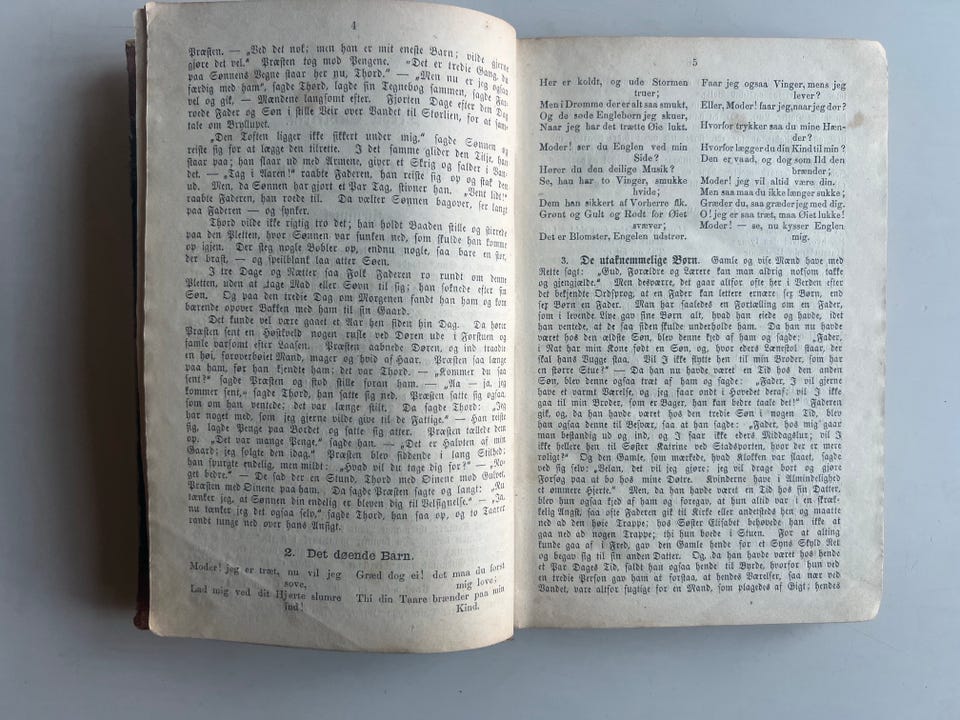 4
Præsten. — „Ved det nok; men han er mit eneste Barn; vilde gjerne
gjøre det vel.“ Præsten tog mod Pengene. — „Det er tredie Gang, du
paa Sønnens Vegne staar her nu, Thord.“ — „Men nu er jeg ogsaa
færdig med ham“, sagde Thord, lagde sin Tegnebog sammen, sagde Far-
vel og gik. — Mændene langsomt efter. Fjorten Dage efter den Dag
roede Fader og Søn i stille Veir over Vandet til Storlien, for at sam-
tale om Bryllupet.
„Den Toften ligger ikke sikkert under mig,“ sagde Sønnen og
reiste sig for at lægge den tilrette. I det samme glider den Tilje, han
staar paa; han slaar ud med Armene, giver et Skrig og falder i Van-
det. — „Tag i Aaren!“ raabte Faderen, han reiste sig op og stak den
ud. Men, da Sønnen har gjort et Par Tag, stivner han. „Vent lidt!“
raabte Faderen, han roede til. Da vælter Sønnen bagover, ser langt
paa Faderen — og synker.
Thord vilde ikke rigtig tro det; han holdt Baaden stille og stirrede
paa den Pletten, hvor Sønnen var sunken ned, som skulde han komme
op igjen. Der steg nogle Bobler op, endnu nogle, saa bare en stor,
der brast, — og speilblank laa atter Søen.
I tre Dage og Nætter saa Folk Faderen ro rundt om denne
Pletten, uden at tage Mad eller Søvn til sig; han søknede efter sin
Søn. Og paa den tredie Dag om Morgenen fandt han ham og kom
bærende opover Bakken med ham til sin Gaard.
Det kunde vel være gaaet et Aar hen siden hin Dag. Da hører
Præsten sent en Høstkveld nogen rusle ved Døren ude i Forstuen og
famle varsomt efter Laasen. Præsten aabnede Døren, og ind traadte
en høi, foroverbøiet Mand, mager og hvid af Haar. Præsten saa længe
paa ham, før han kjendte ham; det var Thord. — „Kommer du saa
sent?“ sagde Præsten og stod stille foran ham. — „Aa — ja, jeg
kommer sent,“ sagde Thord, han satte sig ned. Præsten satte sig ogsaa,
som om han ventede; det var længe stilt. Da sagde Thord: „Jeg
har noget med, som jeg gjerne vilde give til de Fattige.“ — Han reiste
sig, lagde Penge paa Bordet og satte sig atter. Præsten tællede dem
op. „Det var mange Penge,“ sagde han. — „Det er Halvten af min
Gaard; jeg solgte den idag.“ Præsten blev siddende i lang Stilhed;
han spurgte endelig, men mildt: „Hvad vil du tage dig for?“ — „No-
get bedre.“ — De sad der en Stund, Thord med Øinene mod Gulvet,
Præsten med Øinene paa ham. Da sagde Præsten sagte og langt: „Nu
tænker jeg, at Sønnen din endelig er bleven dig til Velsignelse.“ — „Ja,
nu tænker jeg det ogsaa selv,“ sagde Thord, han saa op, og to Taarer
randt tunge ned over hans Ansigt.
2. Det døende Barn.
Moder! jeg er træt, nu vil jeg
sove,
Lad mig ved dit Hjerte slumre
ind!
Græd dog ei! det maa du først
mig love;
Thi din Taare brænder paa min
Kind.
5
Her er koldt, og ude Stormen
truer;
Men i Drømme der er alt saa smukt,
Og de søde Englebørn jeg skuer,
Naar jeg har det trætte Øie lukt.
Moder! ser du Englen ved min
Side?
Hører du den deilige Musik?
Se, han har to Vinger, smukke
hvide;
Dem han sikkert af Vorherre fik.
Grønt og Gult og Rødt for Øiet
svæver;
Det er Blomster, Englen udstrør.
Faar jeg ogsaa Vinger, mens jeg
lever?
Eller, Moder! faar jeg, naar jeg dør?
Hvorfor trykker saa du mine Hæn-
der?
Hvorfor lægger du din Kind til min?
Den er vaad, og dog som Ild den
brænder;
Moder! jeg vil altid være din.
Men saa maa du ikke længer sukke;
Græder du, saa græder jeg med dig.
O! jeg er saa træt, maa Øiet lukke!
Moder! — se, nu kysser Englen
mig.
3. De utaknemmelige Børn. Gamle og vise Mænd have med
Rette sagt: „Gud, Forældre og Lærere kan man aldrig noksom takke
og gjengjælde.“ Men desværre, det gaar altfor ofte her i Verden efter
det bekjendte Ordsprog, at en Fader kan lettere ernære sex Børn, end
sex Børn en Fader. Man har saaledes en Fortælling om en Fader,
som i levende Live gav sine Børn alt, hvad han eiede og havde, idet
han ventede, at de saa siden skulde underholde ham. Da han nu havde
været hos den ældste Søn, blev denne kjed af ham og sagde: „Fader,
i Nat har min Kone født en Søn, og, hvor eders Lænestol staar, der
skal hans Vugge staa. Vil I ikke flytte hen til min Broder, som har
en større Stue?“ — Da han nu havde været en Tid hos den anden
Søn, blev denne ogsaa træt af ham og sagde: „Fader, I vil gjerne
have et varmt Værelse, og jeg faar ondt i Hovedet deraf; vil I ikke
gaa til min Broder, som er Bager, han kan bedre taale det!“ Faderen
gik, og, da han havde været hos den tredie Søn i nogen Tid, blev
han ogsaa denne til Besvær, saa at han sagde: „Fader, hos mig gaar
man bestandig ud og ind, og I faar ikke eders Middagslur; vil I
ikke hellere hen til Søster Katrine ved Stadsporten, hvor der er mere
roligt?“ Og den Gamle, som mærkede, hvad Klokken var slaaet, sagde
ved sig selv: „Velan, det vil jeg gjøre; jeg vil drage bort og gjøre
Forsøg paa at bo hos mine Døtre. Kvinderne have i Almindelighed
et ømmere Hjerte.“ Men, da han havde været en Tid hos sin Datter,
blev hun ogsaa kjed af ham og foregav, at hun altid var i en skræk-
kelig Angst, saa ofte Faderen gik til Kirke eller andetsteds hen og maatte
ned ad den høie Trappe; hos Søster Elisabet behøvede han ikke at
gaa ned ad nogen Trappe; thi hun boede i Stuen. For at alting
kunde gaa af i Fred, gav den Gamle hende for et Syns Skyld Ret
og begav sig til sin anden Datter. Og, da han havde været hos hende
et Par Dages Tid, faldt han ogsaa hende til Byrde, hvorfor hun ved
en tredie Person gav ham at forstaa, at hendes Værelser, saa nær ved
Vandet, vare altfor fugtige for en Mand, som plagedes af Gigt; hendes